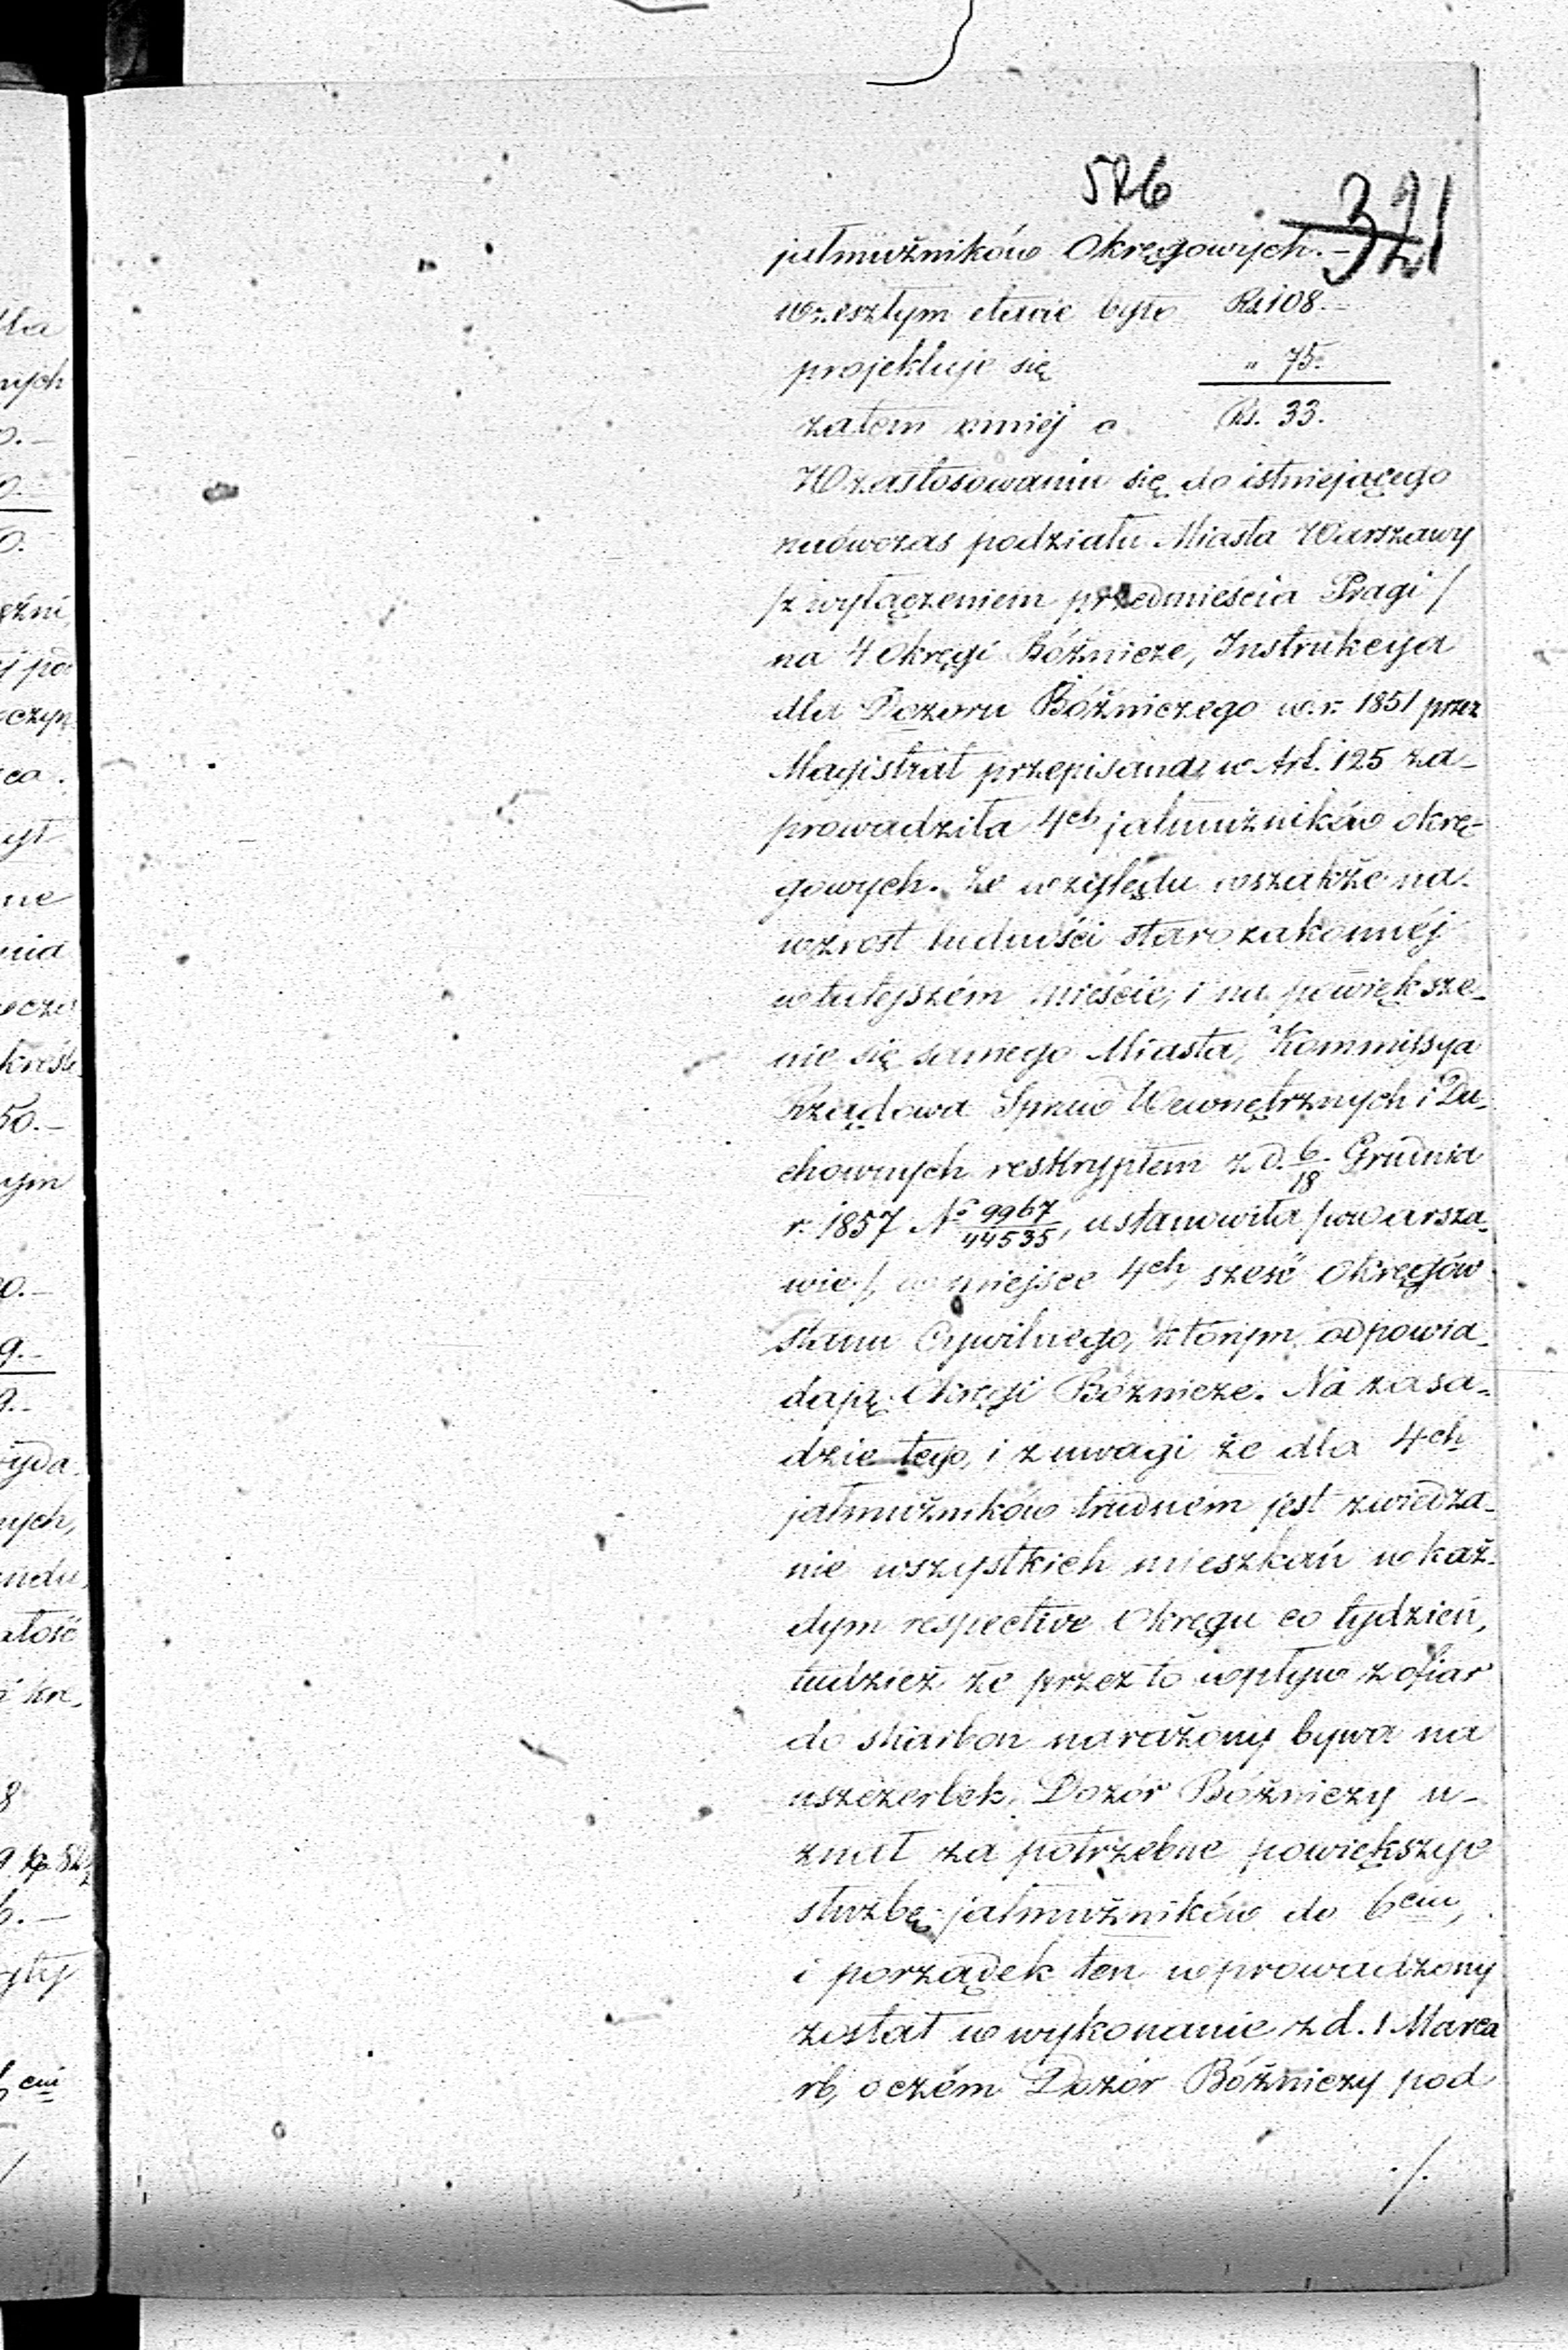 526
321
jałmużników Okręgowych. –
w zeszłym etacie było Rs. 108. –
projektuje się " 75.
zatem mniéj o Rs. 33.
W zastosowaniu się do istniejącego
naówczas podziału Miasta Warszawy
/z wyłączeniem przedmieścia Pragi/
na 4 Okręgi Bóżnicze, Instrukcya
dla Dozoru Bóżniczego w r. 1851 przez
Magistrat przepisana, w Art. 125 za-
prowadziła 4ch jałmużników okrę-
gowych. Ze względu wszakże na
wzrost ludności starozakonnéj
w tutejszém mieście, i na powiększe-
nie się samego Miasta, Kommissya
Rządowa Spraw Wewnętrznych i Du-
chownych reskryptem z d. 6/18 Grudnia
r. 1857 No 9967/44535, ustanowiła /w Warsza-
wie/, w miejsce 4ch, sześć Okręgów
Stanu Cywilnego, którym odpowia-
dają Okręgi Bóżnicze. Na zasa-
dzie tego, i z uwagi że dla 4ch
jałmużników trudném jest zwiedza-
nie wszystkich mieszkań w każ-
dym respective Okręgu co tydzień,
tudzież że przez to wpływ z ofiar
do skarbon narażony bywa na
uszczerbek, Dozór Bóżniczy u-
znał za potrzebne powiększyć
służbę jałmużników do 6ciu,
i porządek ten wprowadzony
został w wykonanie z d. 1 Marca
rb, o czém Dozór Bóżniczy pod
./.